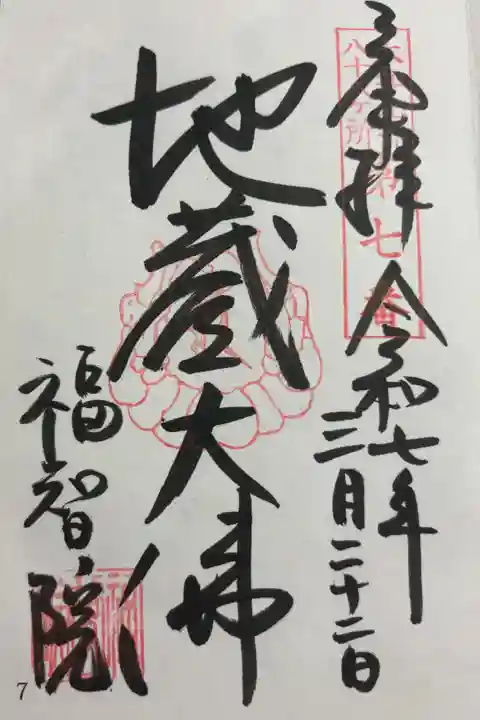 奉拝
令和七年
三月二十二日
八十八ヶ所
第七番
地蔵大佛
福智院
7